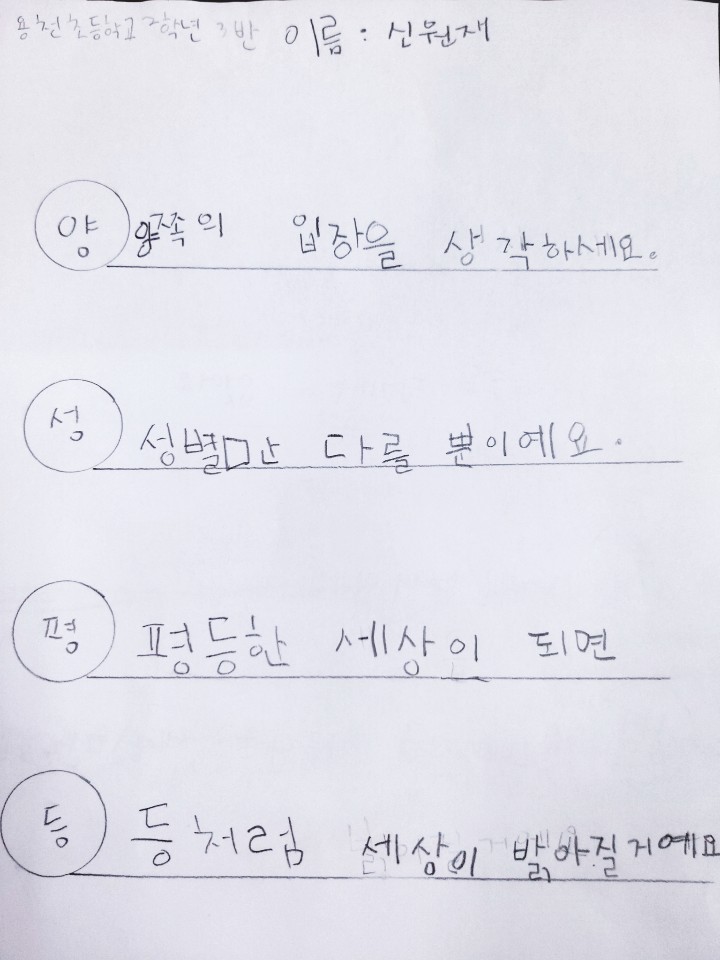 용천초등학교 2학년 3반 이름 : 신원재
양 양쪽의 입장을 생각하세요.
성 성별만 다를 뿐이예요.
평 평등한 세상이 되면
등 등처럼 세상이 밝아질거예요